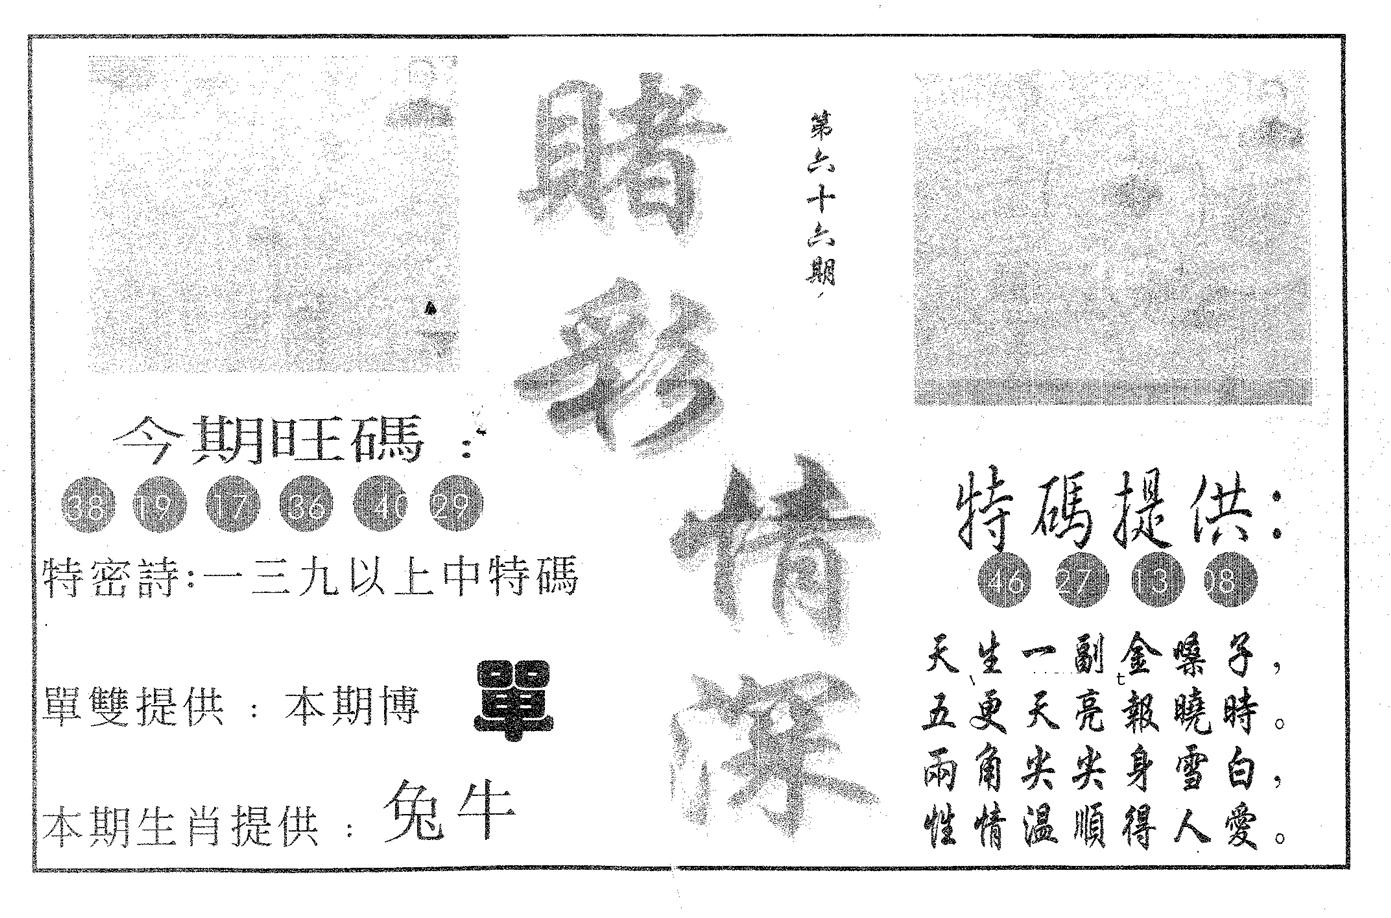 賭彩情深
第六十六期
今期旺碼：
38 19 17 36 40 29
特密詩:一三九以上中特碼
單雙提供：本期博 單
本期生肖提供：兔牛
特碼提供：
46 27 13 08
天生一副金嗓子，
五更天亮報曉時。
兩角尖尖身雪白，
性情溫順得人愛。